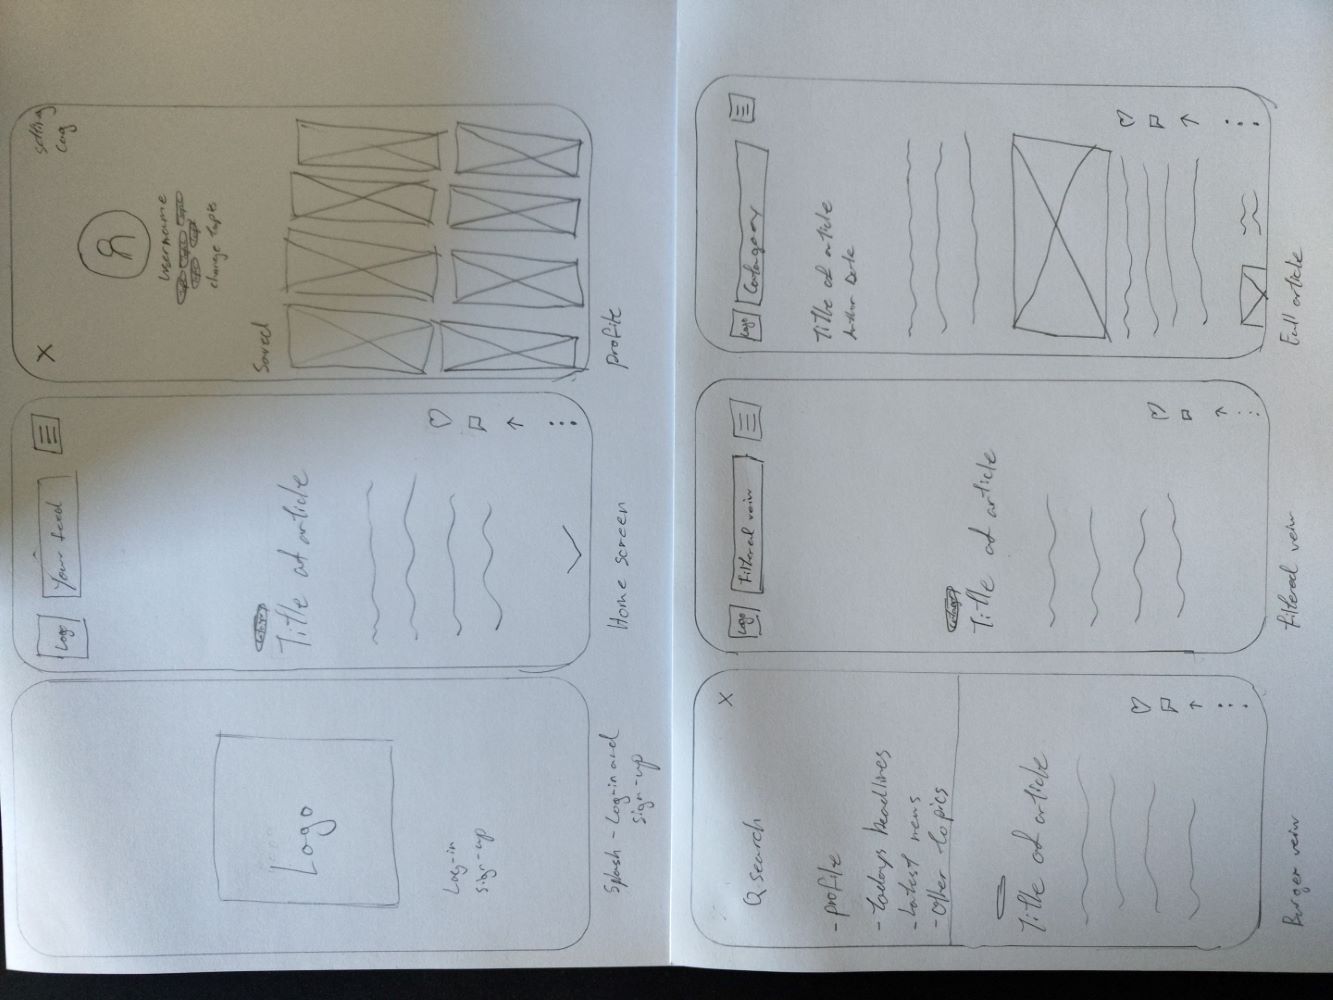 Logo
Log-in
sign-up
Splash - Log-in and
sign-up
Logo
Your feed
Category
Title of article
Home screen
X
setting
cog
username
Topic Topic Topic
Topic Topic
change topics
Saved
profile
X
search
- profile
- todays headlines
- Latest news
- Other topics
Title of article
Burger veiw
Logo
filtered veiw
Category
Title of article
filtered veiw
Logo
Catagoory
Title of article
Author Date
Full article